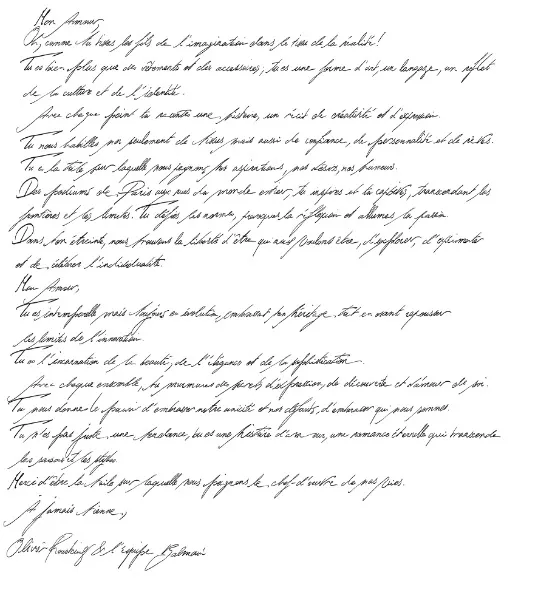 Mon Amour,
Oh, comme tu tisses les fils de l'imagination dans le tissu de la réalité!
Tu es bien plus que des vêtements et des accessoires, tu es une forme d'art, un langage, un reflet
de la culture et de l'identité.
Avec chaque point tu racontes une histoire, un récit de créativité et d'expression.
Tu nous habilles non seulement de tissus mais aussi de confiance, de personnalité et de rêves.
Tu es la toile sur laquelle nous peignons nos aspirations, nos désirs, nos humeurs.
Des podiums de Paris aux rues du monde entier, tu inspires et tu captives, transcendant les
frontières et les limites. Tu défies les normes, provoques la réflexion et allumes la passion.
Dans ton étreinte, nous trouvons la liberté d'être qui nous voulons être, d'explorer, d'expérimenter
et de célébrer l'individualité.
Mon Amour,
Tu es intemporelle mais toujours en évolution, embrassant ton héritage tout en osant repousser
les limites de l'innovation.
Tu es l'incarnation de la beauté, de l'élégance et de la sophistication.
Avec chaque ensemble, tu murmures des secrets d'aspiration, de découverte et d'amour de soi.
Tu nous donnes le pouvoir d'embrasser notre unicité et nos défauts, d'embrasser qui nous sommes.
Tu n'es pas juste une tendance, tu es une histoire d'amour, une romance éternelle qui transcende
les saisons et les styles.
Merci d'être la toile sur laquelle nous peignons le chef-d'œuvre de nos vies.
À jamais tienne,
Olivier Rousteing & l'équipe Balmain